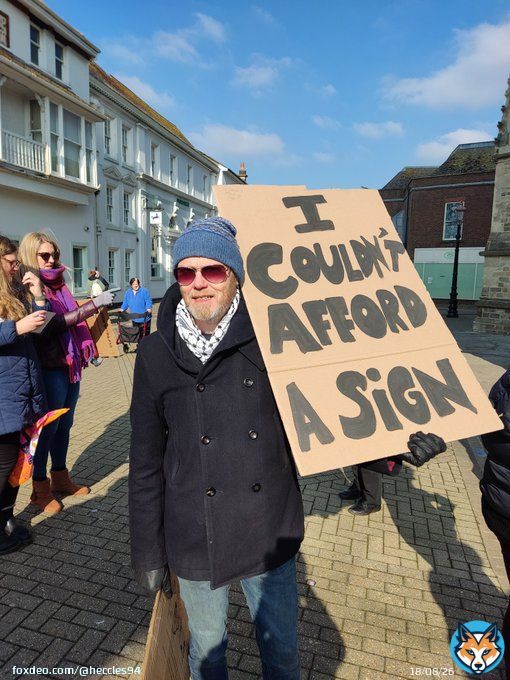 I
COULDN'T
AFFORD
A SiGN
foxdeo.com/@heccles94
18/08/26